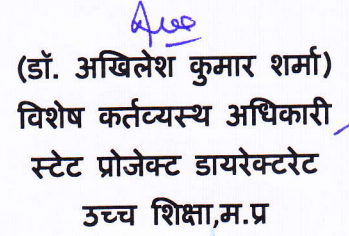 (डॉ. अखिलेश कुमार शर्मा)
विशेष कर्तव्यस्थ अधिकारी
स्टेट प्रोजेक्ट डायरेक्टरेट
उच्च शिक्षा,म.प्र